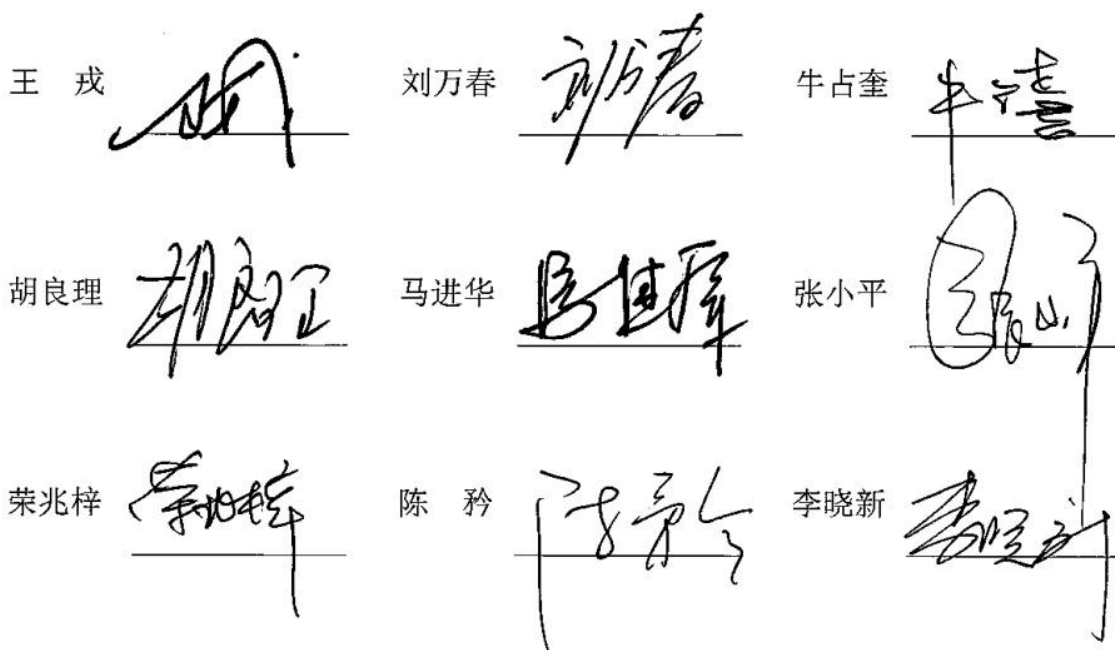 王 戎 刘万春 刘万春 牛占奎 牛占奎
胡良理 胡良理 马进华 马进华 张小平 张小平
荣兆梓 荣兆梓 陈 矜 陈矜 李晓新 李晓新